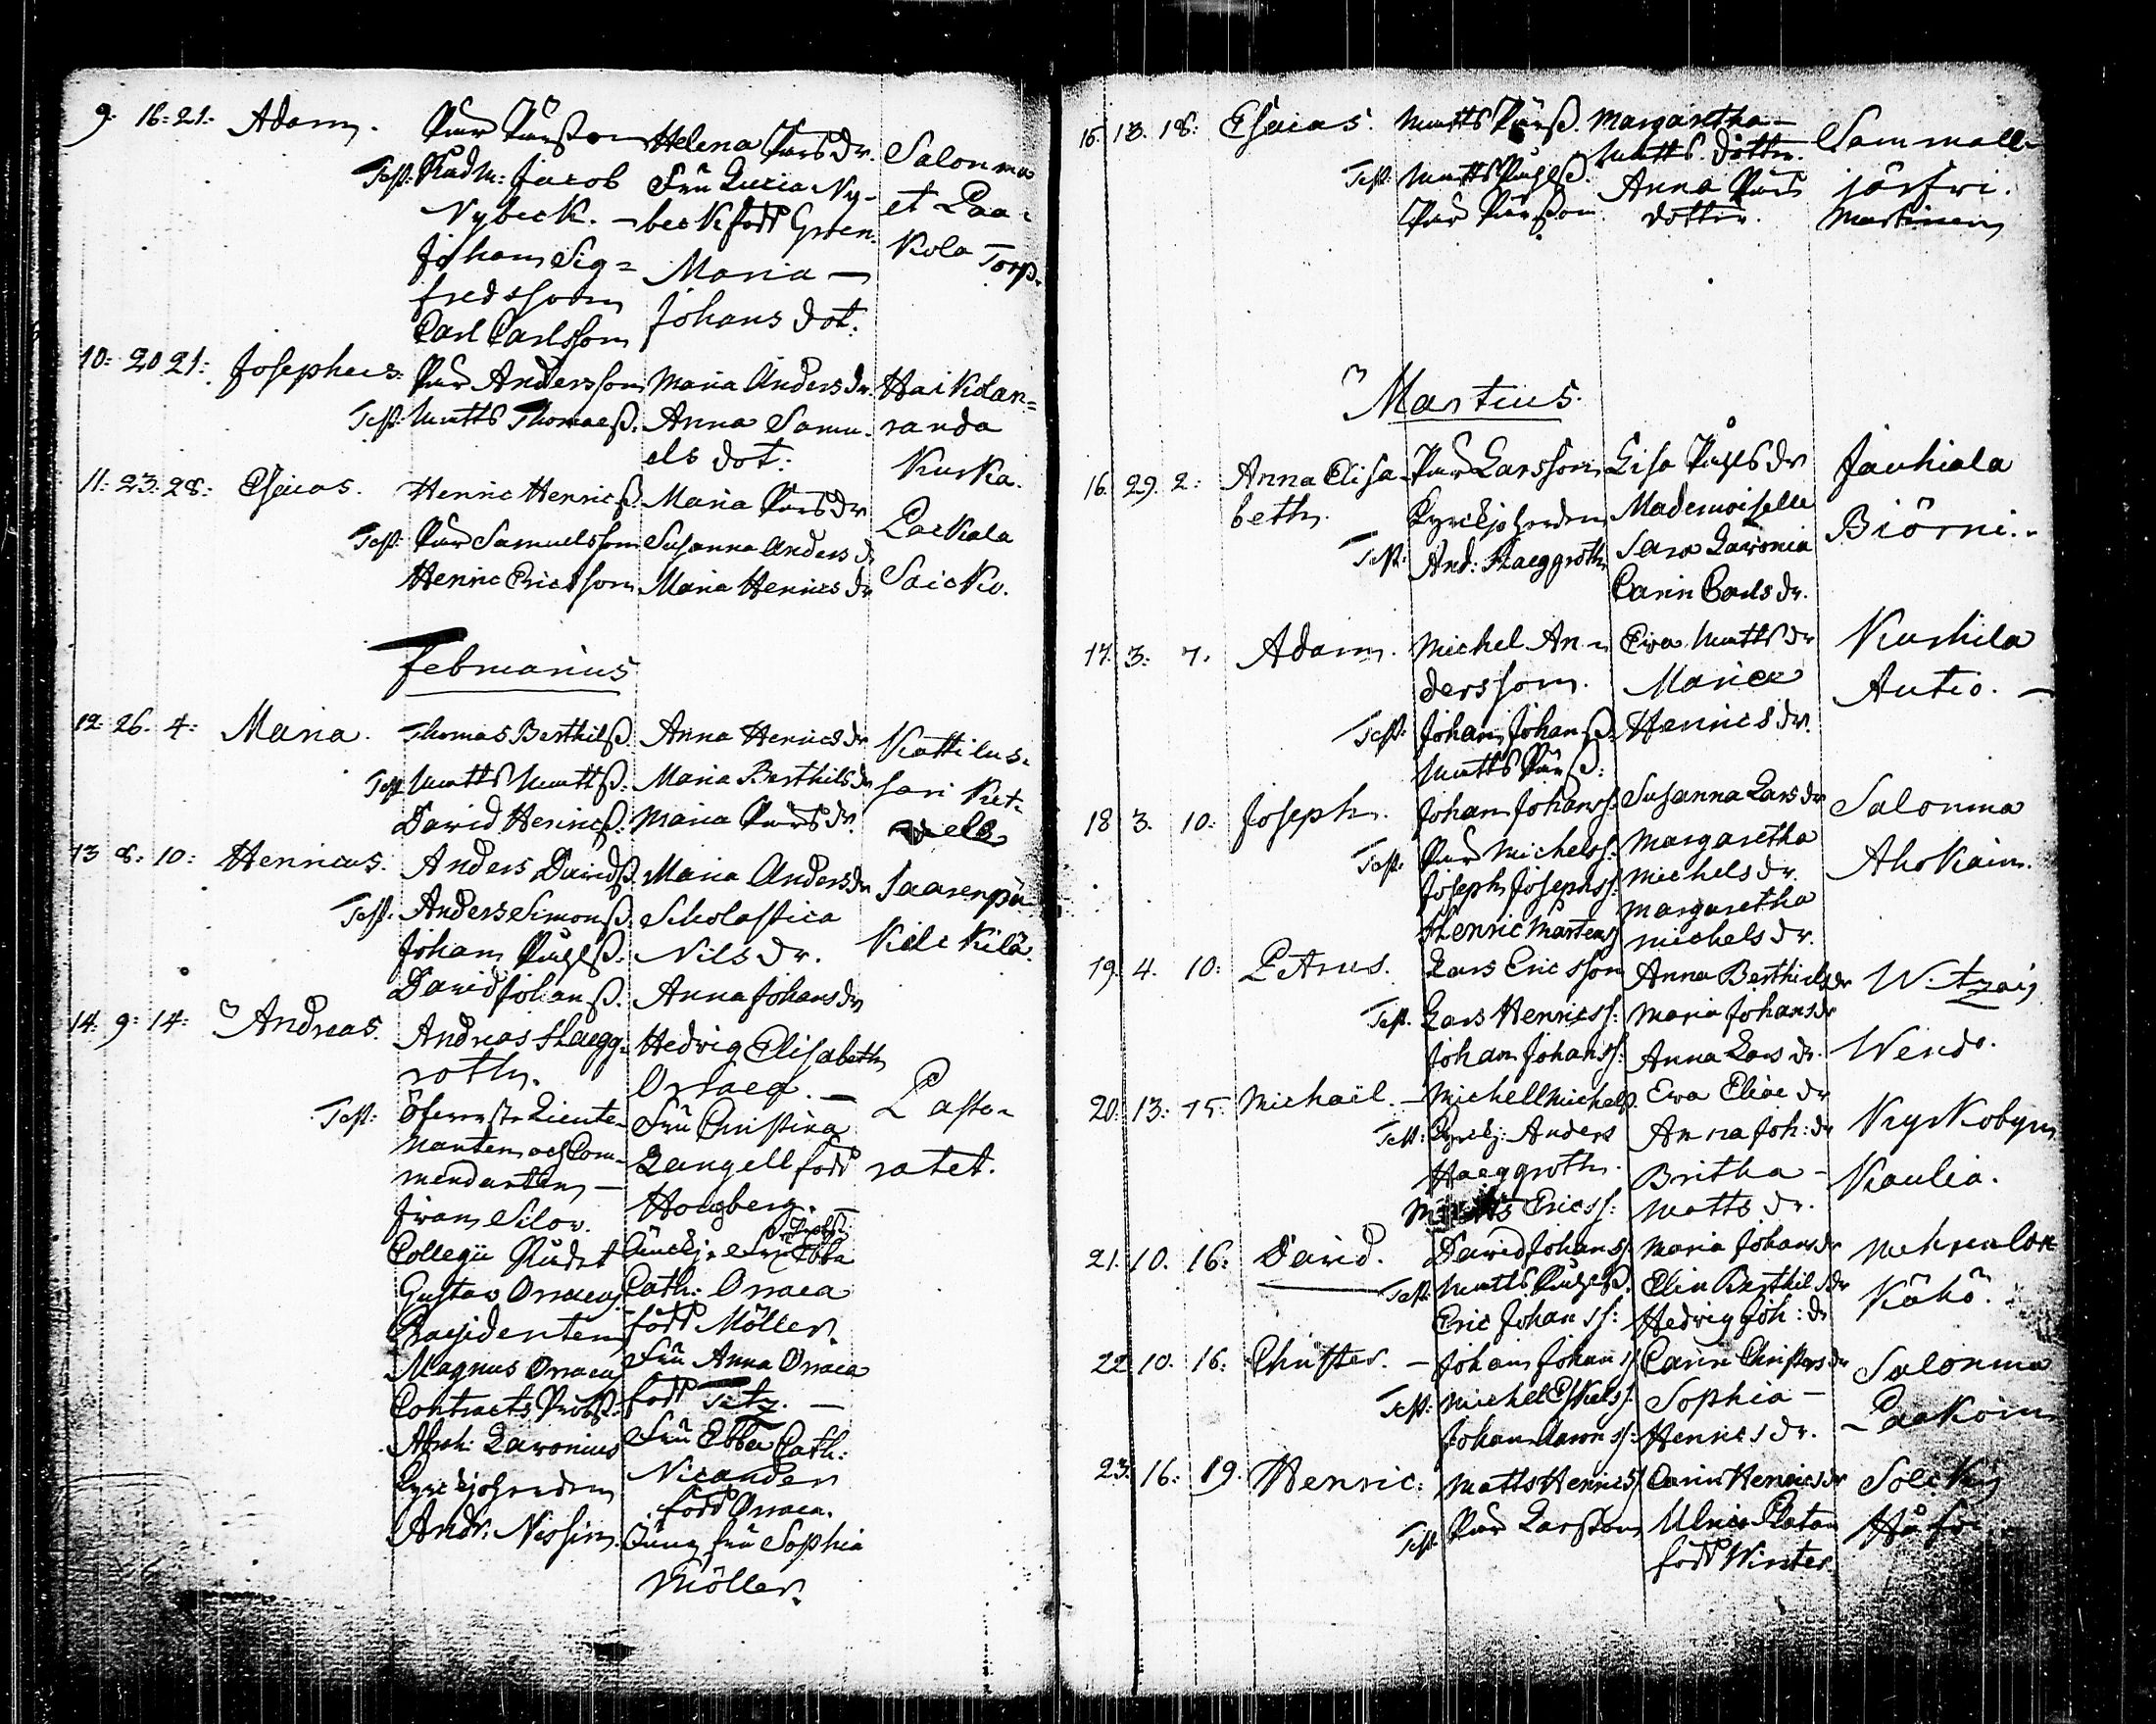 9. 16. 21. Adam. Pär Pärsson Helena Pärs dr. Salonma
Test: Rådm: Jacob Fru Lucia Ny- et Laa-
Nybeck. - beck född Groen. kola Torp.
Johan Sig= Maria -
fredsson Johans dot:
Carl Carlsson
10: 20 21: Josephus: Pär Andersson Maria Anders dr. Haikolan=
Test: Matts Thomass. Anna Samu- randa
els dot: Kuska.
11: 23: 28: Esaias. Henric Henrics. Maria Pärs dr Laikala
Test: Pär Samuelsson Susanna Anders dr Saicko.
Henric Ericsson Maria Henrics dr
Februarius
12: 26. 4: Maria. Thomas Berthilss. Anna Henrics dr Kattilus-
Test Matts Mattss. Maria Berthils dr sari Ket-
David Henricss: Maria Pärs dr. vels
13 8: 10: Henricus. Anders Davidss. Maria Anders dr Saarenpä
Test. Anders Simonss. Scholastica Kilckilä.
Johan Påhlss. Nils dr.
David Johanss. Anna Johans dr
14: 9: 14: Andreas. Andreas Haegg- Hedvig Elisabeth
roth. Orraea. - Pasto-
Test: Öfverste Lieute- Fru Christina ratet.
nanten och Com- Langell född
mendanten - Hoegberg. -
Ivan Silov.
Collegii Rådet Ebba
Gustav Orraeus Cath: Orraea
Praesidenten född Möller.
Magnus Orraeus Fru Anna Orraea
Contracts Probst. född Tetz. -
Abrh: Lavonius Fru Ebba Cath:
Kyrckjoherden Nicander
Andr: Nissin. född Orraea.
Jungfru Sophia
Möller.
15. 13. 18: Esaias. Matts Pärss. Margaretha - Sammall-
Matts dotter. järfvi.
Test: Matts Påhlss. Anna Pärs Martinen
Pär Pärsson dotter.
Martius.
16. 29. 2: Anna Elisa- Pär Larsson Lisa Påhls dr Jauhiala
beth. Kyrckjoherden Mademoiselle Biörni..
Test: And: Haeggroth Sara Lavonia
Carin Carls dr.
17. 3: 7. Adam. Michel An- Eva Matts dr Kurhila
dersson. Maria Autio. -
Test: Johan Johanss: Henrics dr.
Matts Pärss:
18 3. 10: Joseph. Johan Johanss: Susanna Lars dr Salonma
Test: Pär Michelss: Margaretha Ahokain.
Joseph Josephss: Michels dr.
Henric Mårtenss Margaretha
Michels dr.
19. 4. 10: Petrus. Lars Ericsson Anna Berthils dr
Test. Lars Henricss: Maria Johans dr
Johan Johanss: Anna Lars dr. Wendo.
20. 13: 15. Michaël. - Michell Michelss. Eva Eliae dr Kyrkobyn
Test: Kyrckj: Anders Anna Joh: dr Kaulia.
Haeggroth. Britha -
Matts Ericss: Matts dr.
21. 10. 16: David. David Johanss: Maria Johans dr
Test. Matts Påhlss. Elin Berthils dr Kähö.
Eric Johanss: Hedvig Joh: dr
22 10. 16: Christer. - Johan Johanss Carin Christers dr Salonma
Test: Michel Eskelss: Sophia -
Johan Aaronss: Henrics dr.
23. 16: 19. Henric: Matts Henricss Carin Henrics dr
Test. Pär Larsson Ulrica Platan
född Winter.